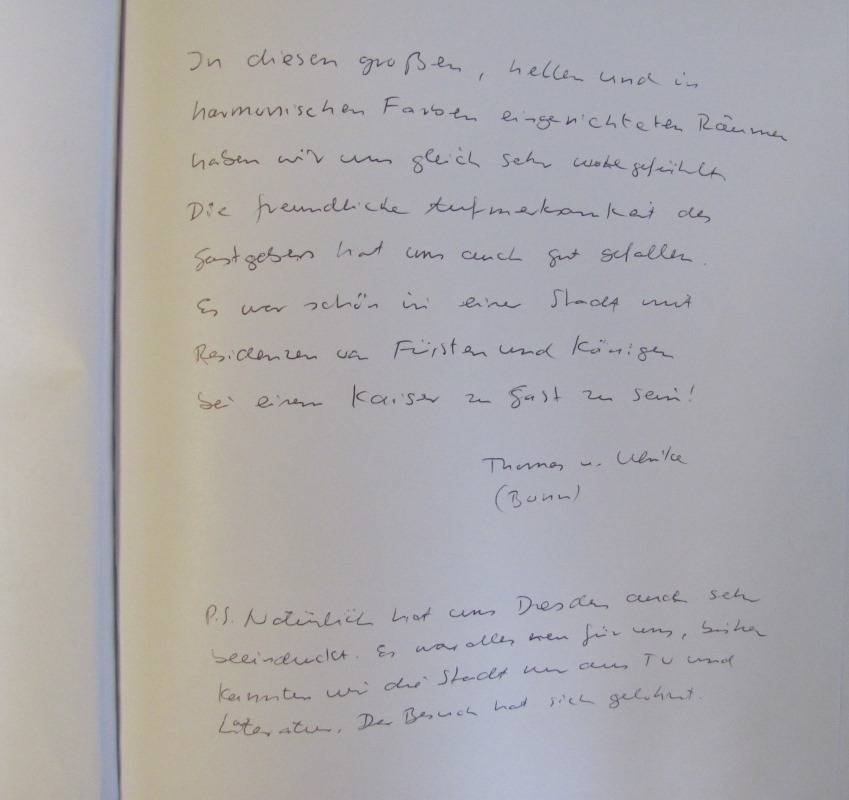 In diesen großen, hellen und in
harmonischen Farben eingerichteten Räumen
haben wir uns gleich sehr wohl gefühlt.
Die freundliche Aufmerksamkeit des
Gastgebers hat uns auch gut gefallen.
Es war schön in einer Stadt mit
Residenzen von Fürsten und Königen
bei einem Kaiser zu Gast zu sein!
Thomas u. Ulrike
(Bonn)
P.S. Natürlich hat uns Dresden auch sehr
beeindruckt. Es war alles neu für uns, bisher
kannten wir die Stadt nur aus TV und
Literatur. Der Besuch hat sich gelohnt.